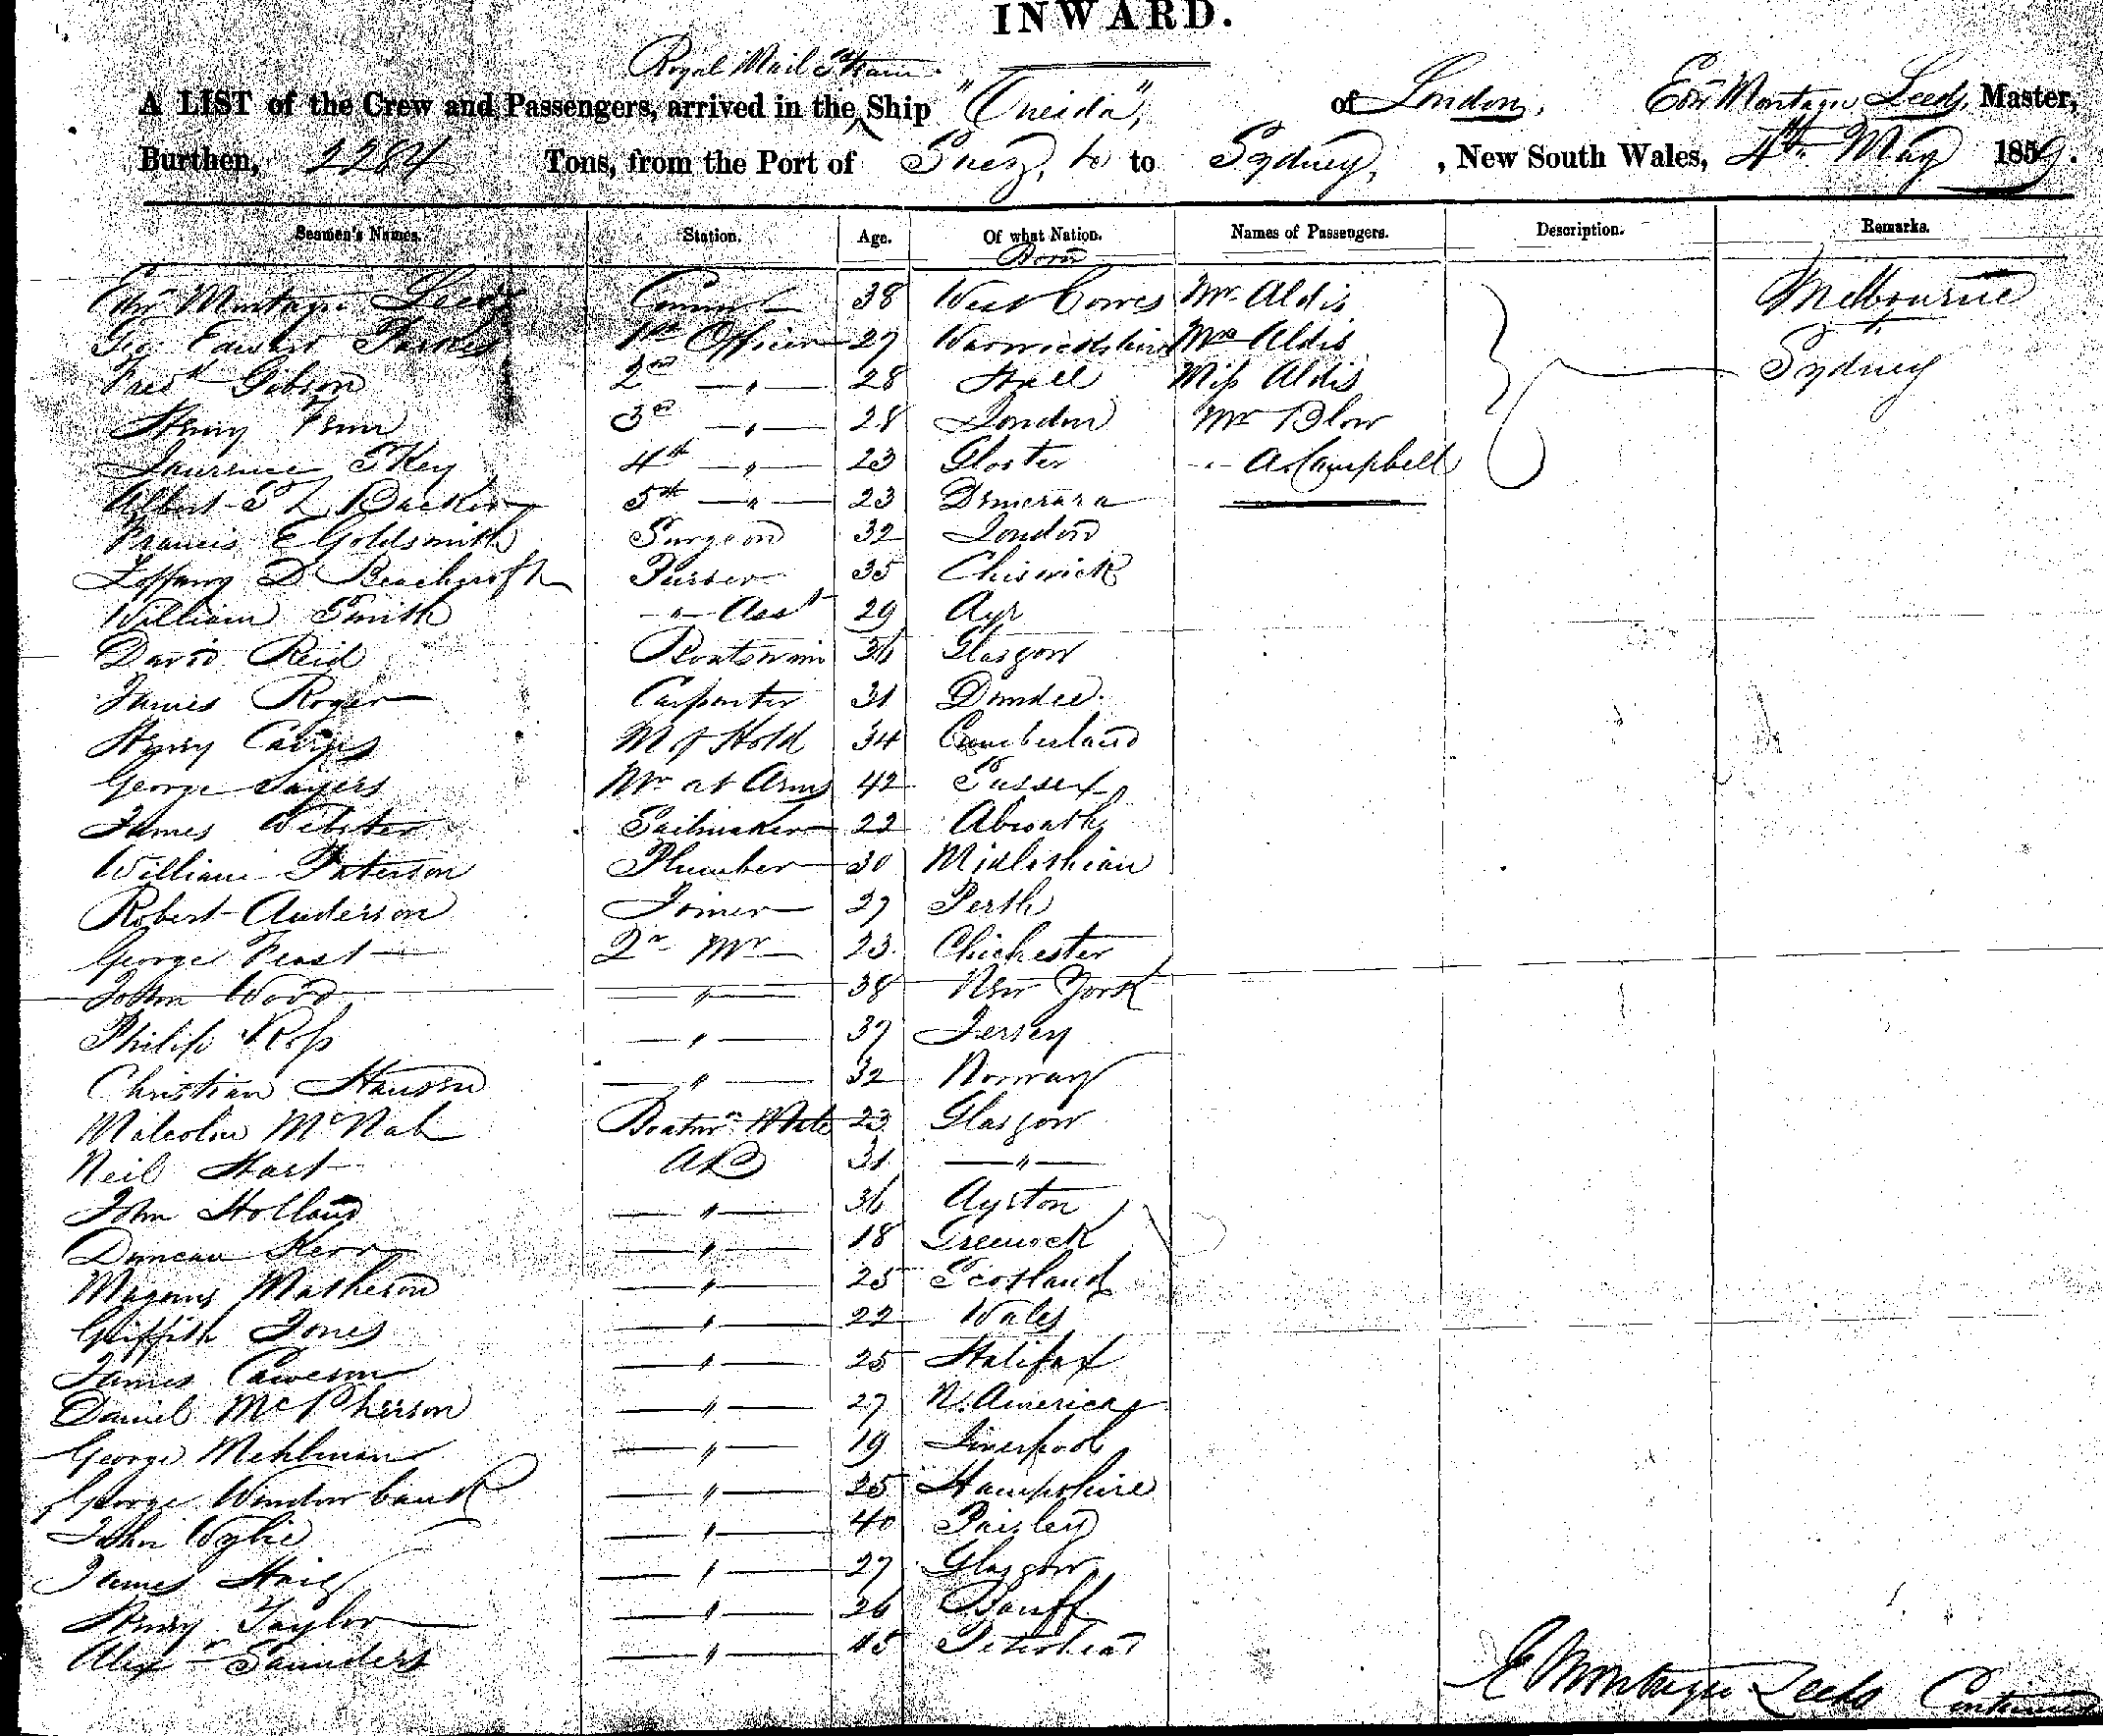 INWARD.
Royal Mail Steam
A LIST of the Crew and Passengers, arrived in the Ship "Oneida", of London, Edw Montagu Leeds, Master,
Burthen, 2284 Tons, from the Port of Suez, &c to Sydney, , New South Wales, 4th May 1859.
Seamen's Names. Station. Age. Of what Nation. Names of Passengers. Description. Remarks.
Born
Edw Montagu Leeds Comm 38 West Cowes Mr Aldis Melbourne
Geo Edward Parkes 1st Officer 27 Warwickshire Mrs Aldis &
Fredk Gibson 2nd " 28 Hull Miss Aldis Sydney
Henry Fenn 3d " 28 London Mr Blow
Laurence S Key 4th " 23 Gloster " A Campbell
Albert S L Barker 5th " 23 Demerara
Francis E Goldsmith Surgeon 32 London
Zoffany D Beachcroft Purser 35 Chiswick
William Smith " Asst 29 Ayr
David Reid Boatswain 36 Glasgow
James Roger Carpenter 31 Dundee.
Henry M of Hold 34 Cumberland
George Sayers Mr at Arms 42 Sussex
James Webster Sailmaker 22
William Paterson Plumber 30 Midlothian
Robert Anderson Joiner 27 Perth
George Feast Qr Mr 23. Chichester
John Wood " 38 New York
Philip Ross " 37 Jersey
Christian Hansen " 32 Norway
Malcolm McNab Boatsn Mate 23 Glasgow
Neil Hart AB 31 "
John Holland " 36 Ayston
Duncan Kerr " 18 Greenock
Magnus Matheson " 25 Scotland
Griffith Jones " 22 Wales
James " 25 Halifax
Daniel McPherson " 27 N. America
George Mehlman " 19 Liverpool
George Windowbank " 25 Hampshire
John Wylie " 40 Paisley
James Haig " 27 Glasgow
Henry Taylor " 26 Banff
Alexr Saunders " 45 Peterhead
E Montagu Leeds